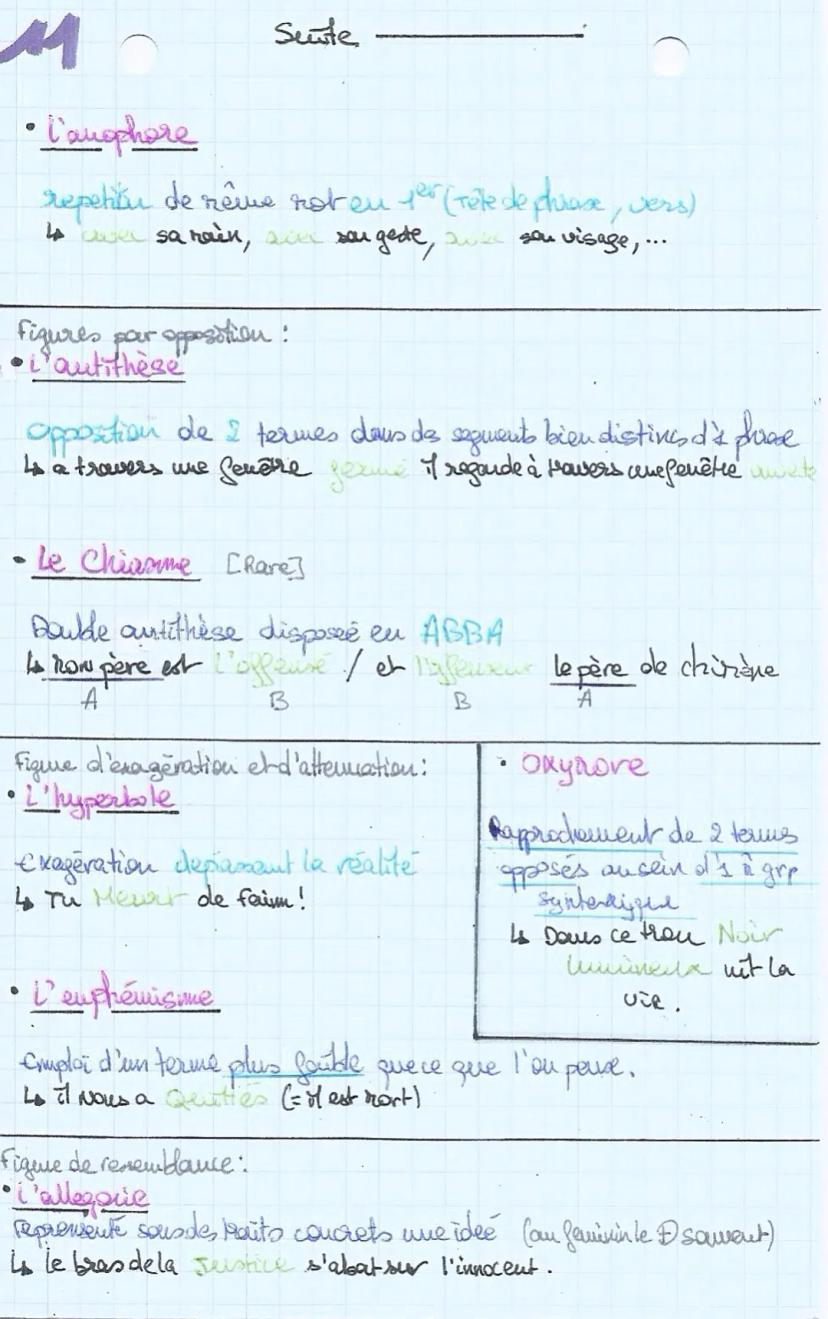 11
Suite
• L'anaphore
repetition de même mot en 1er (Tête de phrase, vers)
↳ avec sa main, avec son geste, avec son visage, ...
Figures par opposition :
• L'antithèse
Opposition de 2 termes dans des segments bien distincs d'1 phrase
↳ a travers une fenêtre fermé il regarde à travers une fenêtre ouverte
• Le Chiasme [Rare]
Double antithèse disposée en ABBA
↳ mon père est l'offensé / et l'offenseur le père de chimène
A B B A
Figure d'exagération et d'attenuation :
• L'hyperbole
Exagération depassant la réalité
↳ Tu Meurt de faim !
• L'euphémisme
Emploi d'un terme plus faible que ce que l'on pense.
↳ il Nous a Quittés (= il est mort)
• Oxymore
Rapprochement de 2 termes
opposés au sein d'1 m̂ grp
syntaxique
↳ Dans ce trou Noir
lumineux vit la
vie.
Figure de ressemblance :
• L'allegorie
represente sous des traits concrets une ideé (au feminin le ⊕ souvent)
↳ le bras de la Justice s'abat sur l'innocent.